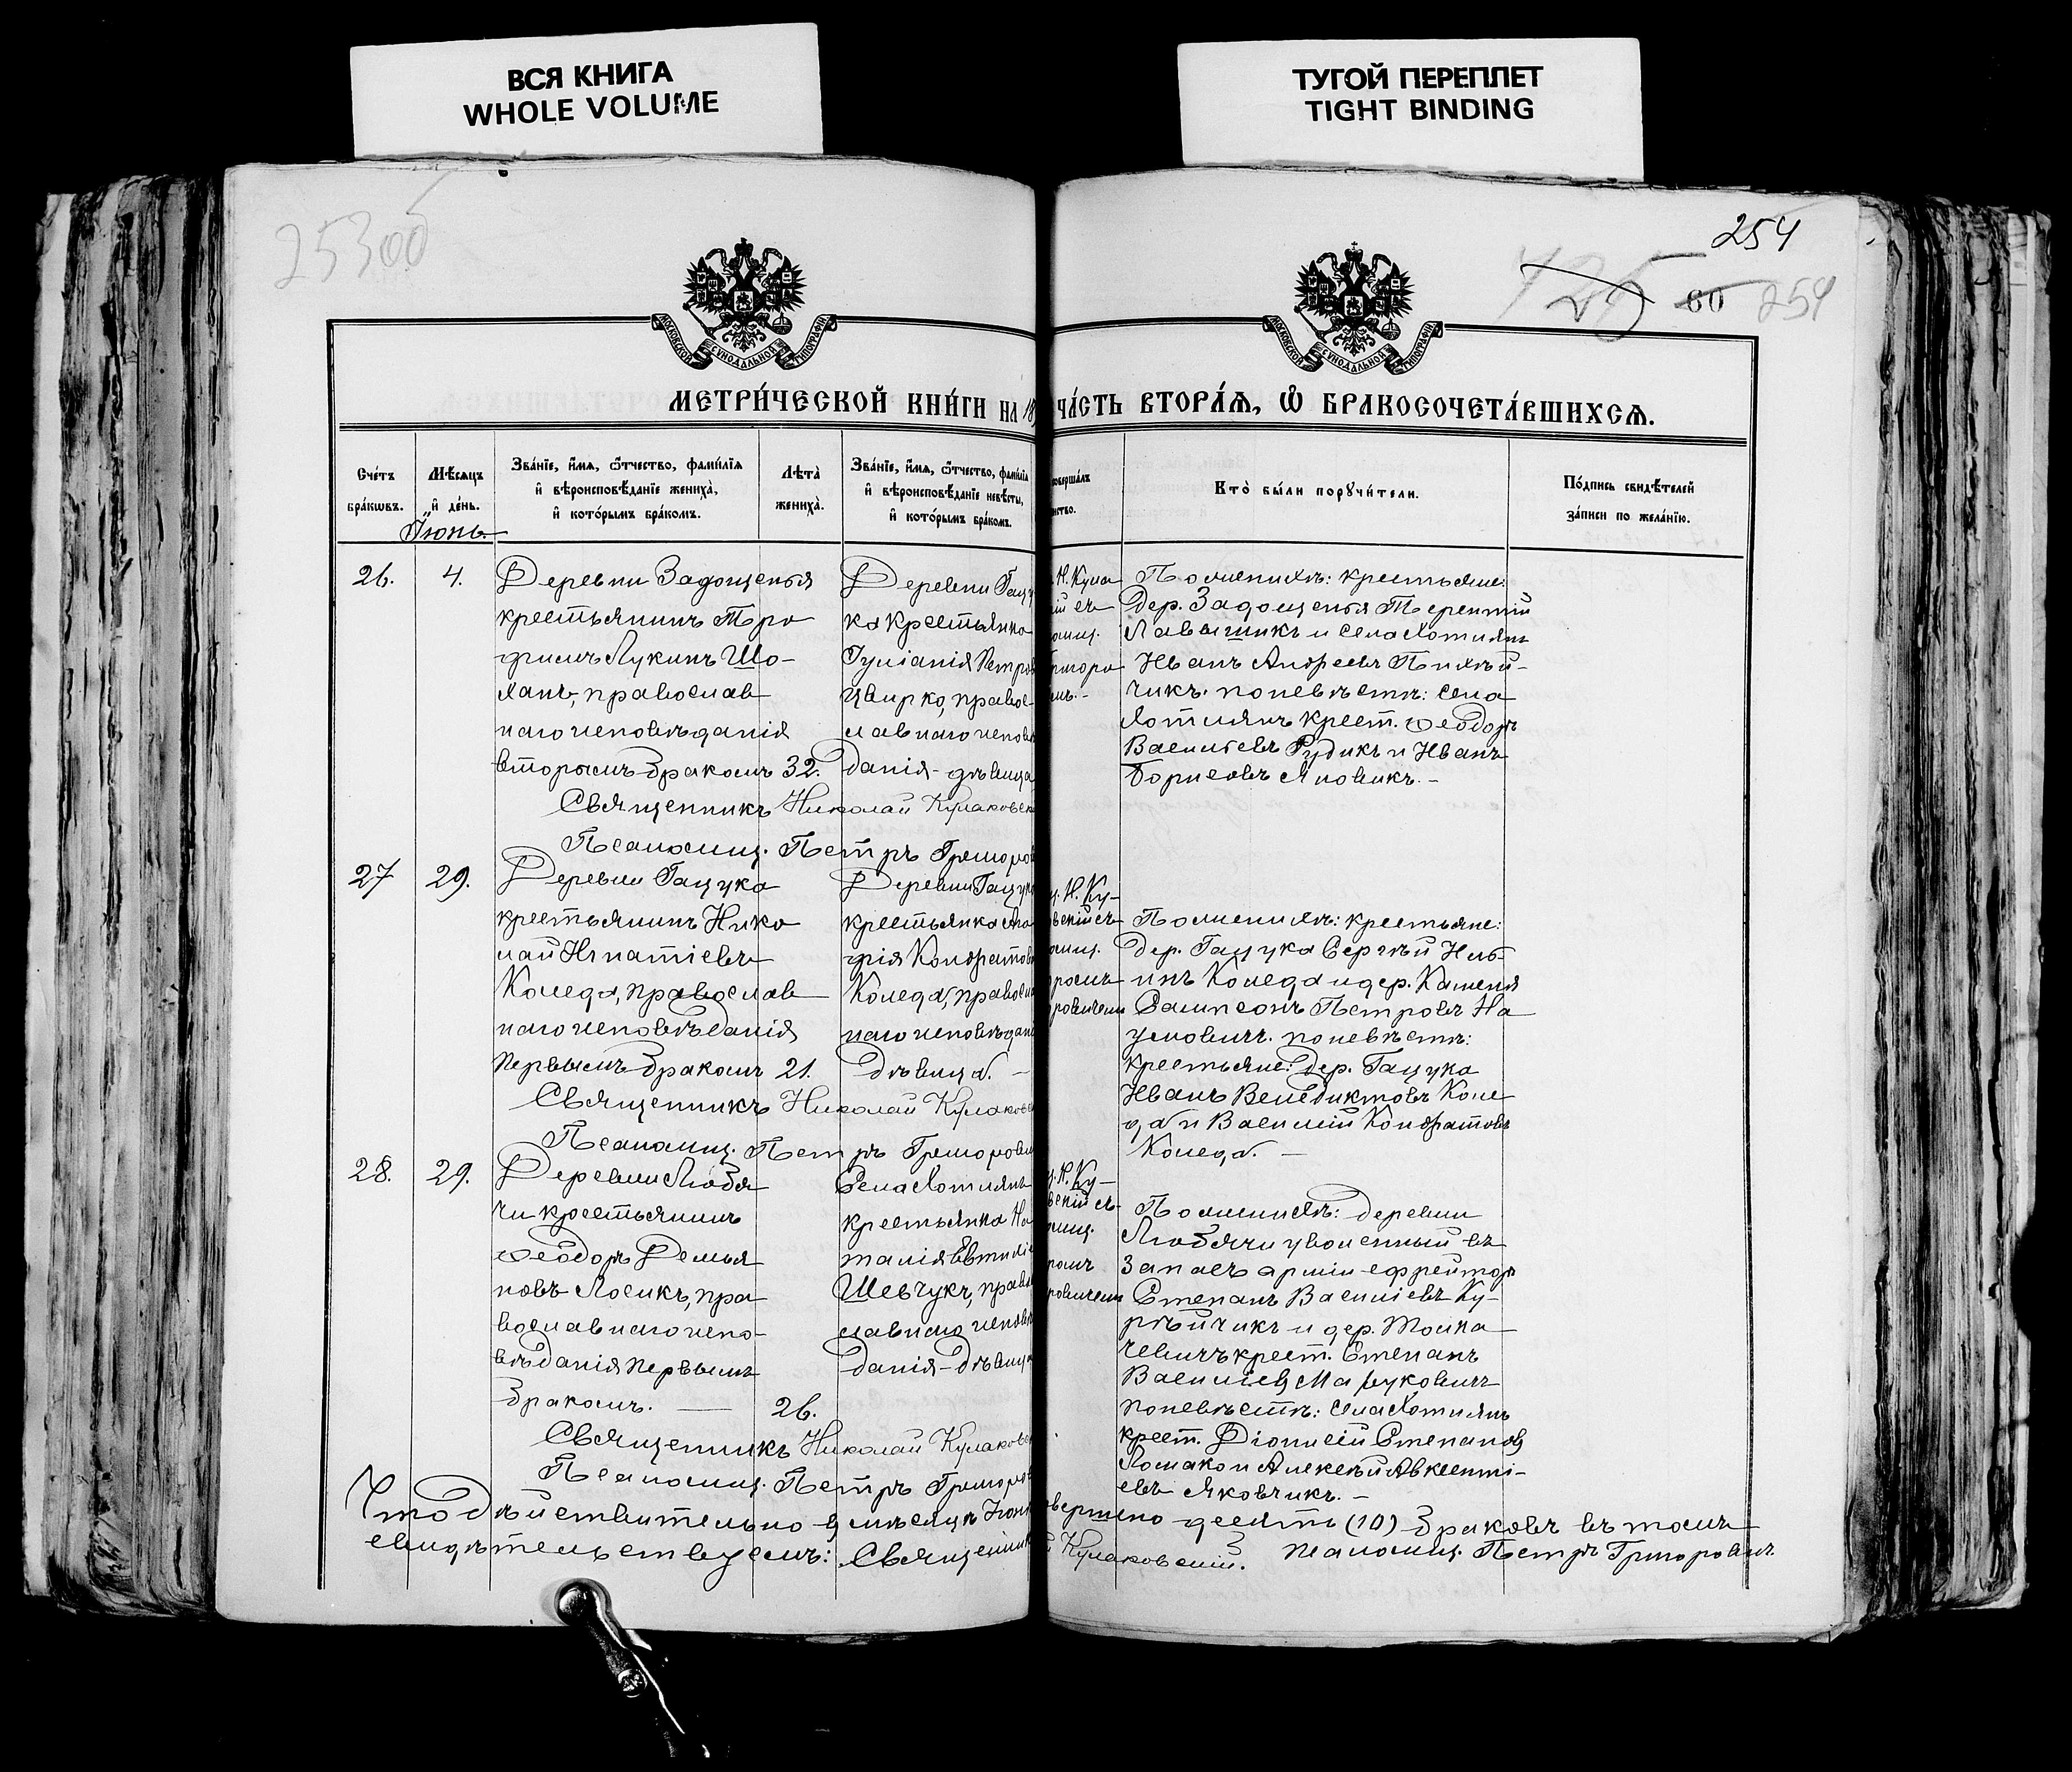 ВСЯ КНИГА
WHOLE VOLUME
ТУГОЙ ПЕРЕПЛЕТ
TIGHT BINDING
253об
254
425
60 254
МОСКОВСКОЙ СѴНОДАЛЬНОЙ ТИПОГРАФІИ
МОСКОВСКОЙ СѴНОДАЛЬНОЙ ТИПОГРАФІИ
МЕТРИ́ЧЕСКОЙ КНИ́ГИ НА 18
ЧА́СТЬ ВТОРА́Ѧ, Ѽ БРАКОСОЧЕТА́ВШИХСѦ.
Сче́тъ
бра́кѡвъ.
Мѣ́сяцъ
и҆ де́нь.
Зва́нїе, и҆́мя, ѻ҆́тчество, фамѝлїя
и҆ вѣроисповѣ́данїе жениха̀,
и҆ кото́рымъ бра́комъ.
Лѣта̀
жениха̀.
Зва́нїе, и҆́мя, ѻ҆́тчество, фамѝлїя
и҆ вѣроисповѣ́данїе невѣ́сты,
и҆ кото́рымъ бра́комъ.
совершалъ
нство.
Кто̀ бы́ли порꙋчи́тели.
По́дпись свидѣ́телей
за́писи по жела́нїю.
Іюнь.
26.
4.
Деревни Задощенья
крестьянинъ Тро
фимъ Лукинъ Шо-
ханъ, православ
наго исповѣданія
вторымъ бракомъ 32.
Деревни Гацу
ка крестьянка
Іуліанія Петров
Цвирко, правос-
лавнаго исповѣ
данія - дѣвица
Н. Кула
ій съ
омщ.
ригоро
мъ. -
По женихѣ: крестьяне:
дер. Задощенья Терентій
и села Хотлянъ
Иванъ Андреевъ Пихлѣй-
чикъ. по невѣстѣ: села
Хотлянъ крест. Ѳеодоръ
Васильевъ Рудикъ и Иванъ
Борисовъ Яновикъ. -
Священникъ Николай Кулаковск
Псаломщ. Петръ Григоров
27
29.
Деревни Гацука
крестьянинъ Нико
лай Игнатіевъ
Коледа, православ
наго исповѣданія
первымъ бракомъ 21.
Деревни Гацука
крестьянка Ага
фія Кондратов
Коледа, правосла
наго исповѣдані
дѣвица. -
щ. Н. Ку-
вскій съ
омщ.
тромъ
ровичемъ
По женихѣ: крестьяне:
дер. Гацука Сергѣй
инъ Коледа и дер. Каменя
Сампсонъ Петровъ На
умовичъ. по невѣстѣ:
крестьяне: дер. Гацука
Иванъ Венедиктовъ Коле
да и Василій Кондратовъ
Коледа. -
Священникъ Николай Кулаковс
Псаломщ. Петръ Григорови
28.
29.
Деревни Любя
чи крестьянинъ
Ѳеодоръ Демья
новъ Лосикъ, пра
вославнаго испо-
вѣданія первымъ
бракомъ. — 26.
Села Хотлянъ
крестьянка На
талія Евтихіе
Шевчукъ, право
славнаго исповѣ
данія - дѣвица
щ. Н. Ку-
вскій съ
омщ.
ромъ
ровичемъ
По женихѣ: деревни
Любячи уволенный въ
запасъ арміи ефрейторъ
Степанъ Василіевъ Ку-
рѣйчикъ и дер. Толка
чевичъ крест. Степанъ
Василіевъ Мазуковичъ
по невѣстѣ: села Хотлянъ
крест. Діонисій Степановъ
Ломако и Алексѣй Авксенті-
евъ Яковчикъ. -
Священникъ Николай Кулаковск
Псаломщ. Петръ Григоров
Что дѣйствительно въ мѣсяцѣ Іюн
овершено десять (10) браковъ въ томъ
свидѣтельствуемъ: Священник
й Кулаковскій. Псаломщ. Петръ Григоровичъ.